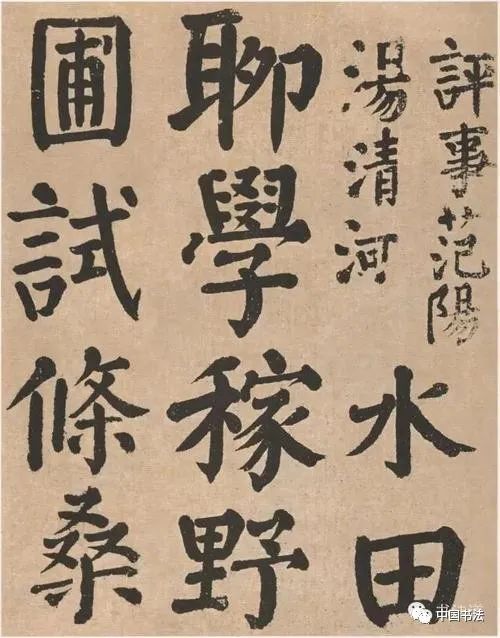 評事范陽
湯清河
水田
聊學稼野
圃試條桑
中国书法